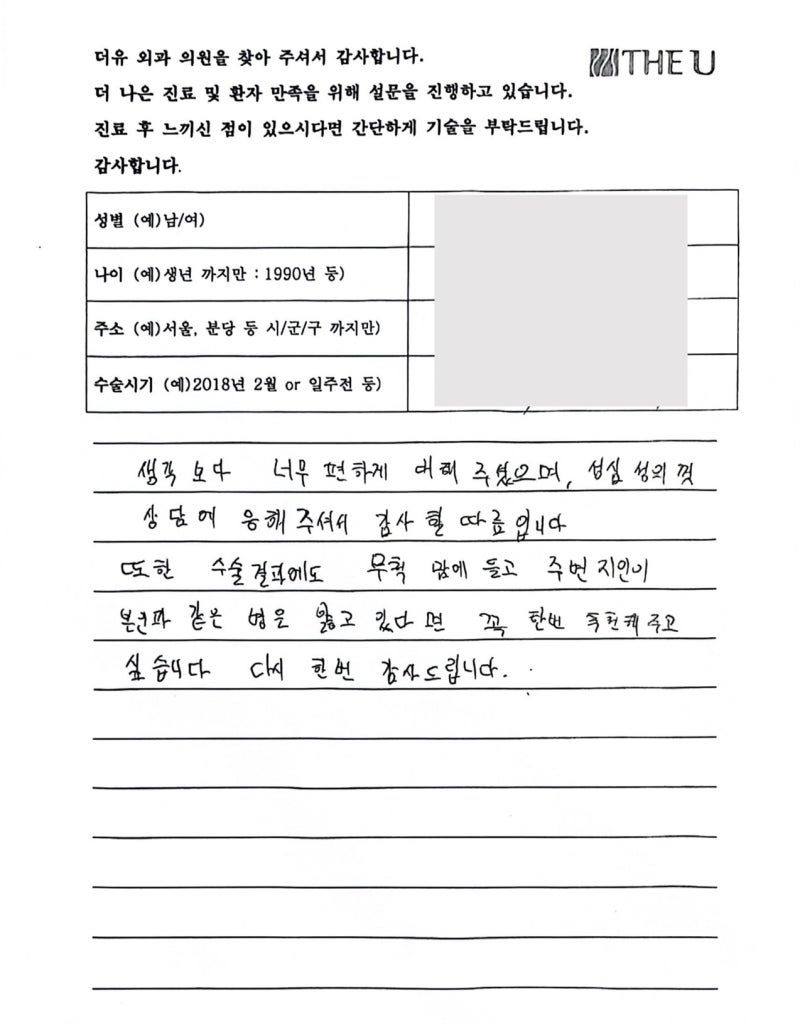 더유 외과 의원을 찾아 주셔서 감사합니다.
THE U
더 나은 진료 및 환자 만족을 위해 설문을 진행하고 있습니다.
진료 후 느끼신 점이 있으시다면 간단하게 기술을 부탁드립니다.
감사합니다.
성별 (예)남/여)
나이 (예)생년 까지만 : 1990년 등)
주소 (예)서울, 분당 등 시/군/구 까지만)
수술시기 (예)2018년 2월 or 일주전 등)
생각 보다 너무 편하게 대해 주셨으며, 성심 성의 껏
상담에 응해 주셔서 감사 할 따름입니다
또한 수술결과에도 무척 맘에 들고 주변 지인이
본인과 같은 병을 앓고 있다면 꼭 한번 추천해 주고
싶습니다 다시 한번 감사드립니다.